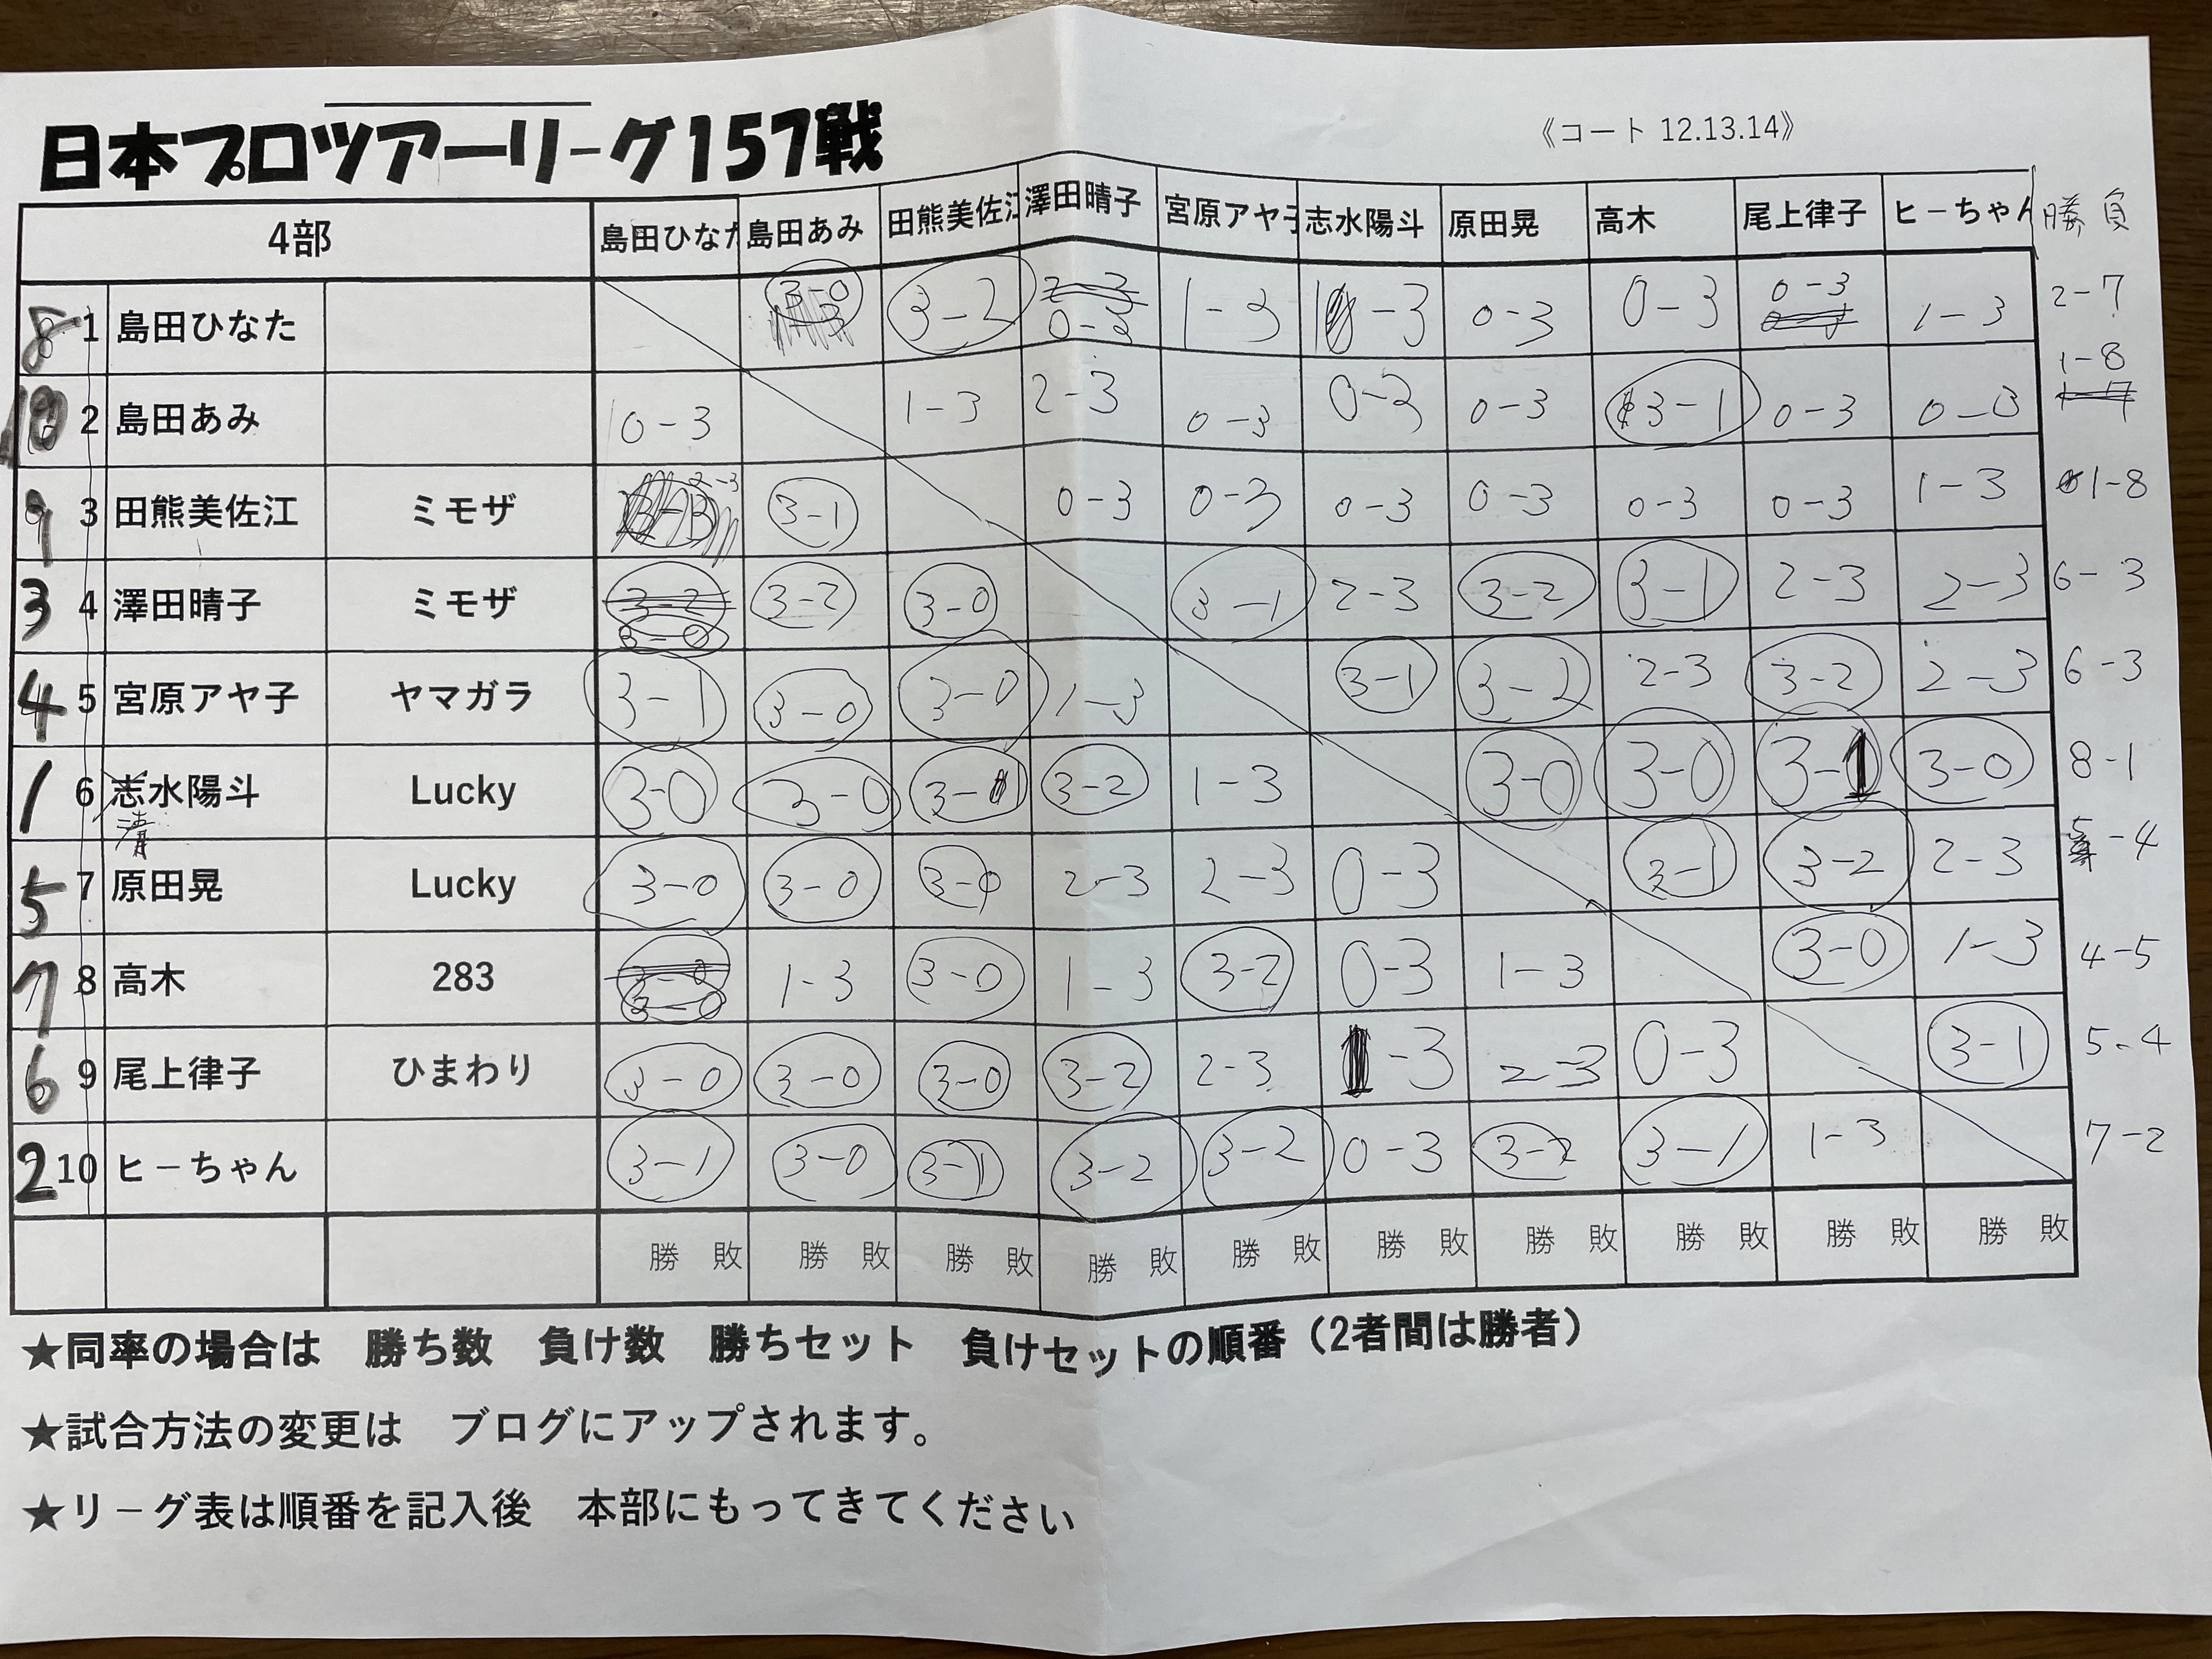 日本プロツアーリーグ157戦
《コート 12.13.14》
4部 島田ひなた 島田あみ 田熊美佐江 澤田晴子 宮原アヤ子 志水陽斗 原田晃 高木 尾上律子 ヒーちゃん 勝 負
8 1 島田ひなた 3-0 3-2 0-3 1-3 1-3 0-3 0-3 0-3 1-3 2-7
10 2 島田あみ 0-3 1-3 2-3 0-3 0-3 0-3 3-1 0-3 0-3 1-8
9 3 田熊美佐江 ミモザ 2-3 3-1 0-3 0-3 0-3 0-3 0-3 0-3 1-3 1-8
3 4 澤田晴子 ミモザ 3-0 3-2 3-0 3-1 2-3 3-2 3-1 2-3 2-3 6-3
4 5 宮原アヤ子 ヤマガラ 3-1 3-0 3-0 1-3 3-1 3-2 2-3 3-2 2-3 6-3
1 6 志水陽斗 Lucky 3-0 3-0 3-1 3-2 1-3 3-0 3-0 3-1 3-0 8-1
清
5 7 原田晃 Lucky 3-0 3-0 3-0 2-3 2-3 0-3 3-1 3-2 2-3 5-4
7 8 高木 283 3-0 1-3 3-0 1-3 3-2 0-3 1-3 3-0 1-3 4-5
6 9 尾上律子 ひまわり 3-0 3-0 3-0 3-2 2-3 1-3 2-3 0-3 3-1 5-4
2 10 ヒーちゃん 3-1 3-0 3-1 3-2 3-2 0-3 3-2 3-1 1-3 7-2
勝 敗 勝 敗 勝 敗 勝 敗 勝 敗 勝 敗 勝 敗 勝 敗 勝 敗 勝 敗
★同率の場合は 勝ち数 負け数 勝ちセット 負けセットの順番（2者間は勝者）
★試合方法の変更は ブログにアップされます。
★リーグ表は順番を記入後 本部にもってきてください